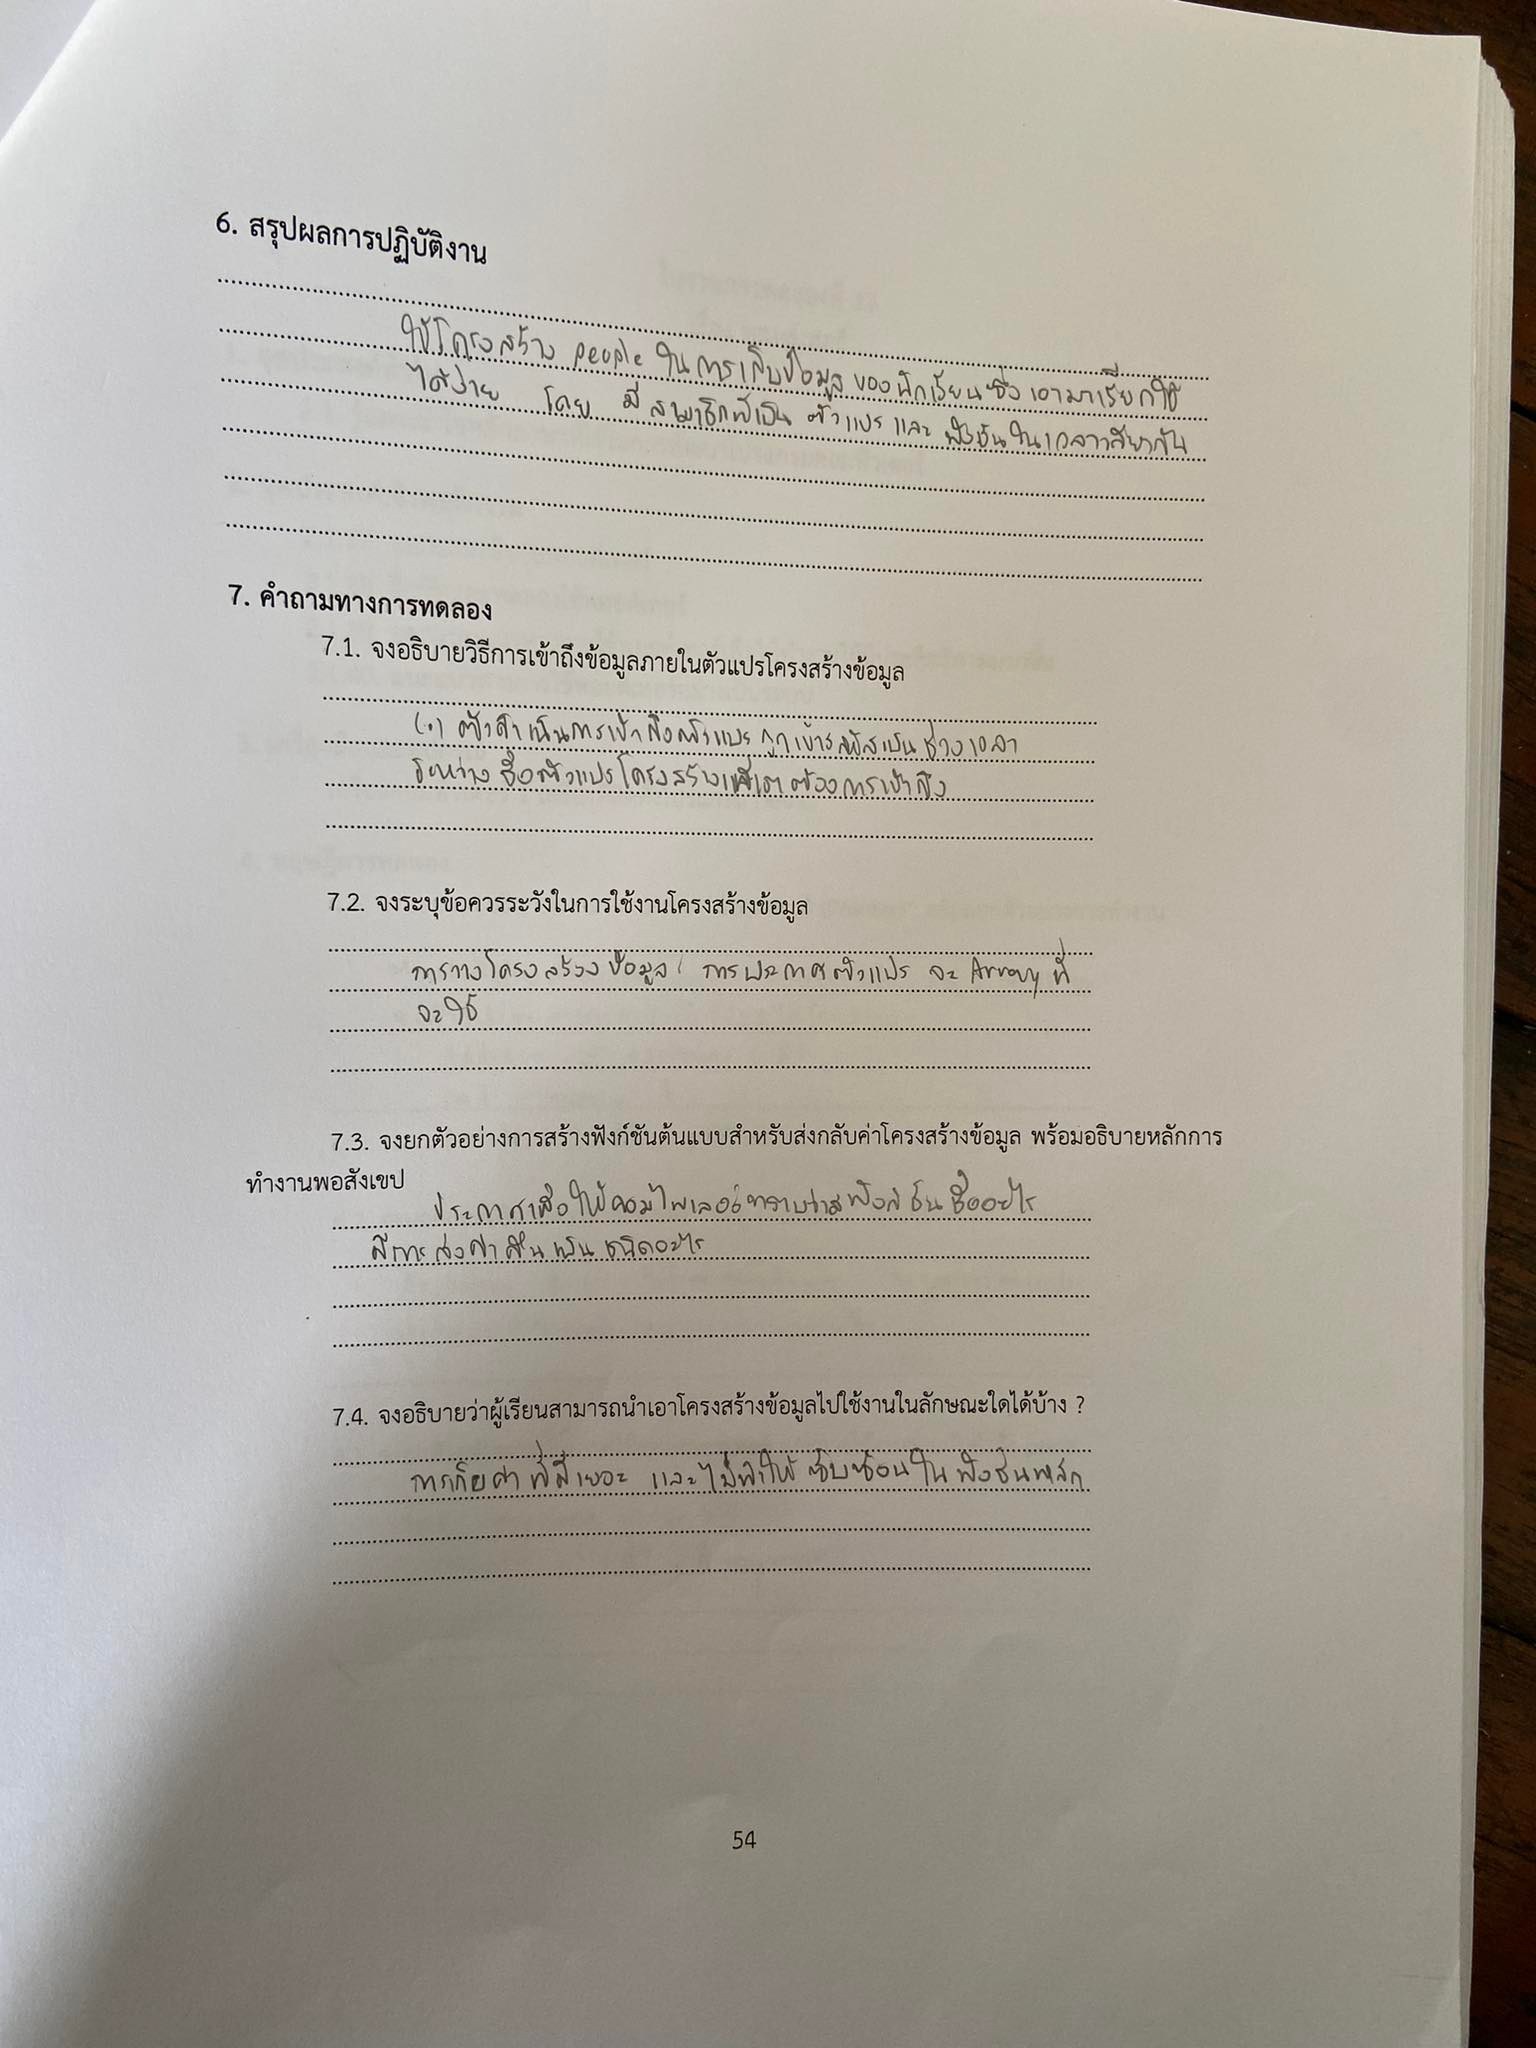 6. สรุปผลการปฏิบัติงาน
ใช้โครงสร้าง people ในการเก็บข้อมูลของนักเรียนซึ่งเอามาเรียกใช้
ได้ง่าย โดย มีสมาชิกที่เป็น ตัวแปร และ ฟังชันในเวลาเดียวกัน
7. คำถามทางการทดลอง
7.1. จงอธิบายวิธีการเข้าถึงข้อมูลภายในตัวแปรโครงสร้างข้อมูล
(.) ตัวดำเนินการเข้าถึงตัวแปร ถูกเข้ารหัสเป็นช่วงเวลา
ระหว่าง ชื่อตัวแปรโครงสร้างที่เราต้องการเข้าถึง
7.2. จงระบุข้อควรระวังในการใช้งานโครงสร้างข้อมูล
การวางโครงสร้างข้อมูล การประกาศตัวแปร จะ Array ที่
จะใช้
7.3. จงยกตัวอย่างการสร้างฟังก์ชันต้นแบบสำหรับส่งกลับค่าโครงสร้างข้อมูล พร้อมอธิบายหลักการ
ทำงานพอสังเขป
ประกาศเพื่อให้คอมไพเลอร์ทราบว่าฟังก์ชันชื่ออะไร
มีการส่งค่าคืนเป็นชนิดอะไร
7.4. จงอธิบายว่าผู้เรียนสามารถนำเอาโครงสร้างข้อมูลไปใช้งานในลักษณะใดได้บ้าง ?
การเก็บค่าที่มีเยอะ และไม่ทำให้ซับซ้อนในฟังชันหลัก
54